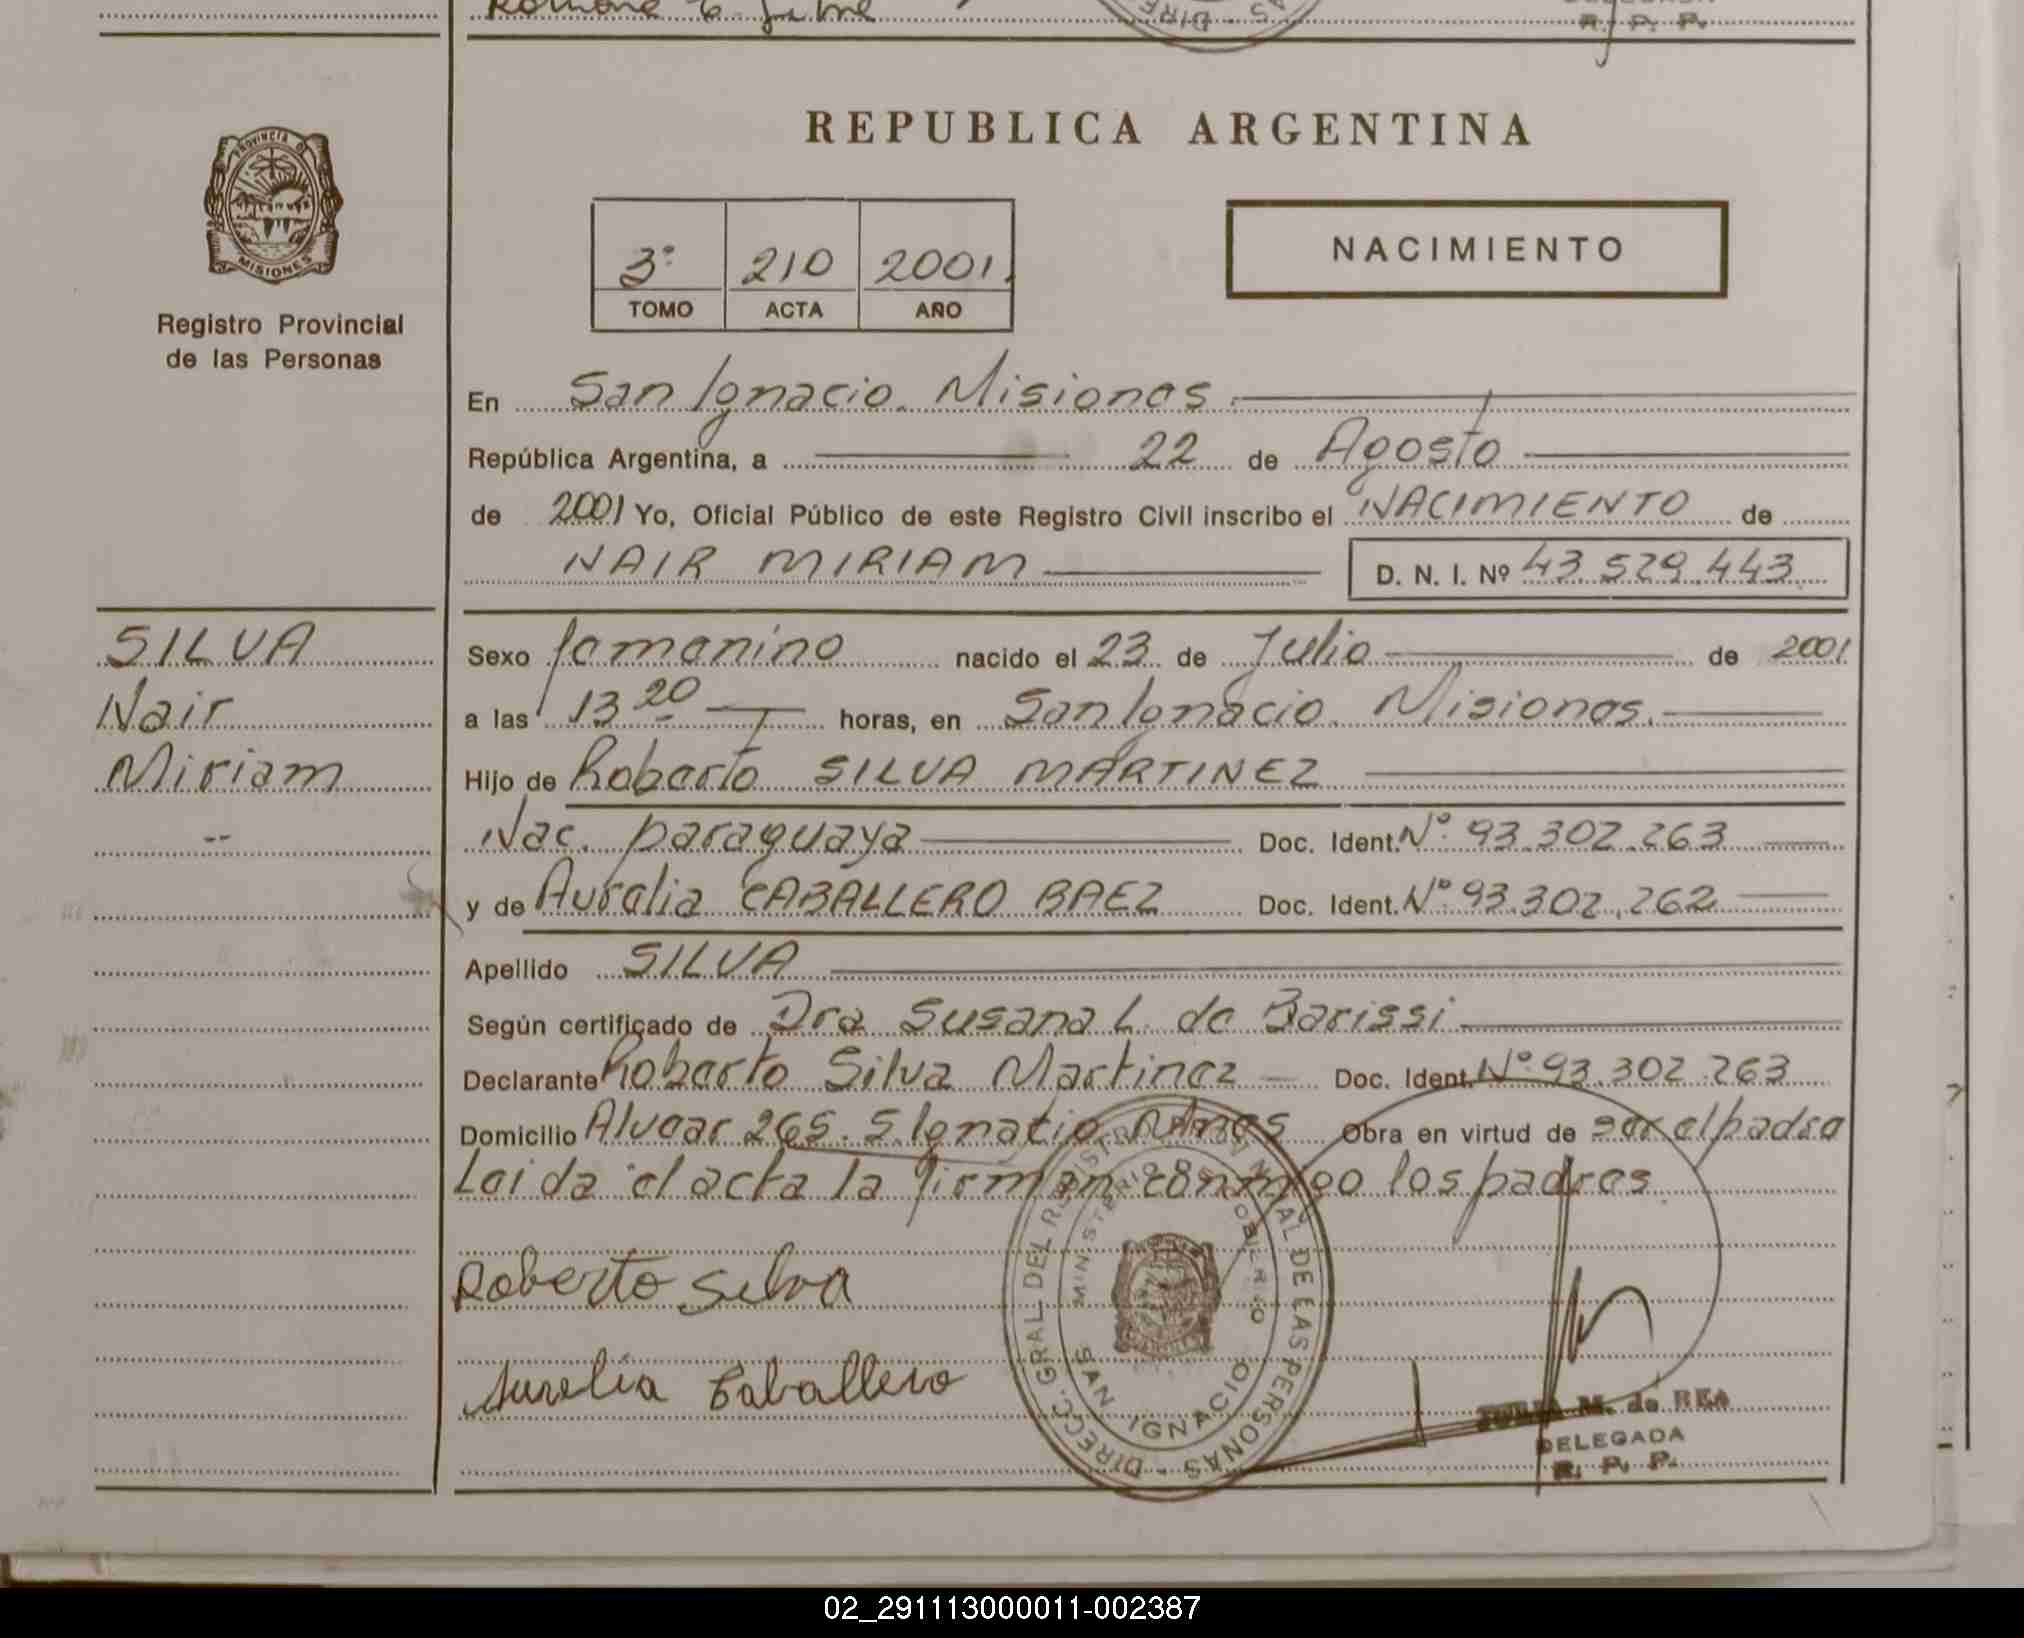 REPUBLICA ARGENTINA
PROVINCIA D
MISIONES
Registro Provincial
de las Personas
3º 210 2001.
TOMO ACTA AÑO
NACIMIENTO
En San Ignacio. Misiones.
República Argentina, a 22 de Agosto
de 2001 Yo, Oficial Público de este Registro Civil inscribo el NACIMIENTO de
NAIR MIRIAM D. N. I. Nº 43.529.443
SILVA
Nair
Miriam
--
Sexo femenino nacido el 23 de Julio de 2001
a las 13 20 horas, en San Ignacio. Misiones.
Hijo de Roberto SILVA MARTINEZ
Nac. paraguaya Doc. Ident. Nº 93.302.263
y de Aurelia CABALLERO BAEZ Doc. Ident. Nº 93.302.262
Apellido SILVA
Según certificado de Dra Susana L. de Barissi
Declarante Roberto Silva Martinez Doc. Ident. Nº 93.302.263
Domicilio Alvear 265. S. Ignacio. Mnes Obra en virtud de ser el padre
Leida el acta la firman conmigo los padres.
Roberto Silva
Aurelia Caballero
DIRECC. GRAL. DEL REGISTRO DE LAS PERSONAS
MINISTERIO DE GOBIERNO
SAN IGNACIO
M. de REA
DELEGADA
R. P. P.
02_291113000011-002387